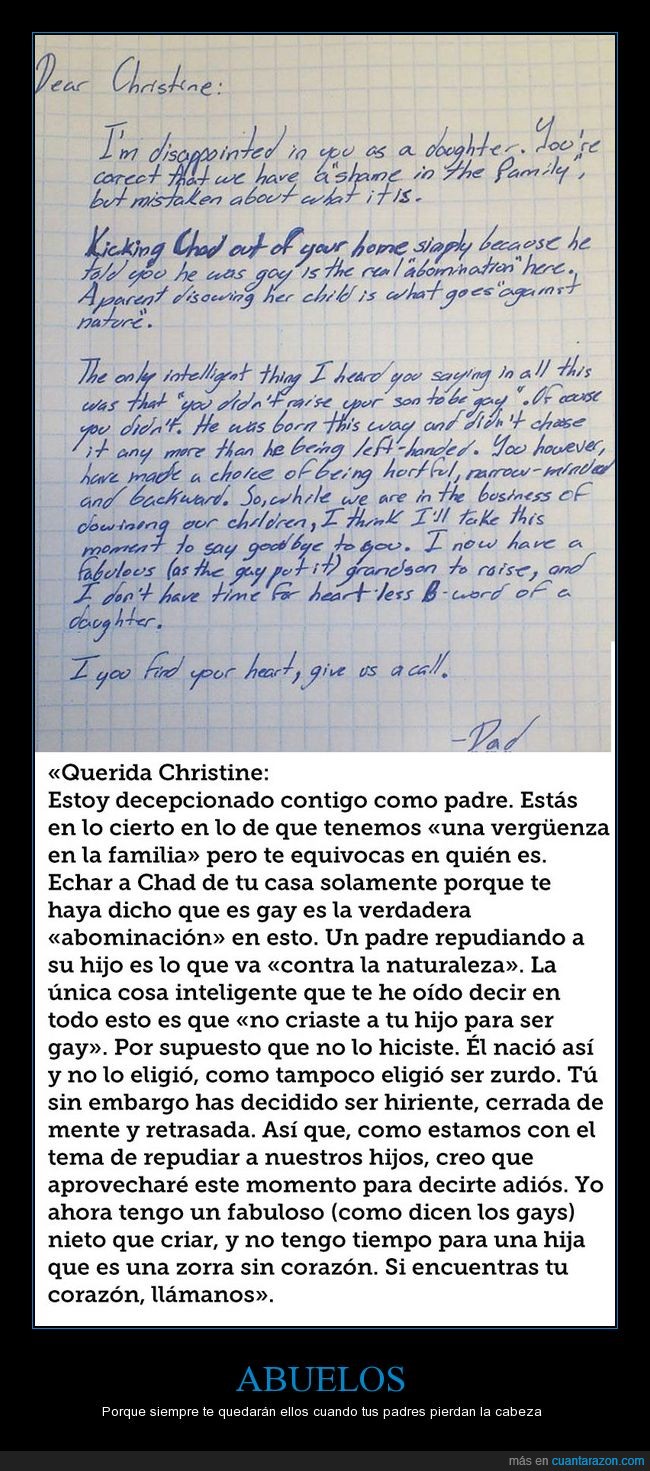 Dear Christine:
I'm disappointed in you as a daughter. You're
corect that we have a "shame in the family",
but mistaken about what it is.
Kicking Chad out of your home simply because he
told you he was gay is the real "abomination" here.
A parent disowing her child is what goes "against
nature".
The only intelligent thing I heard you saying in all this
was that "you didn't raise your son to be gay". Of couse
you didn't. He was born this way and didn't choose
it any more than he being left-handed. You however,
have made a choice of being hurtful, narrow-minded
and backward. So, while we are in the business of
dowinong our children, I think I'll take this
moment to say goodbye to you. I now have a
fabulous (as the gay put it) grandson to raise, and
I don't have time for heart-less B-word of a
daughter.
I you find your heart, give us a call.
-Dad
«Querida Christine:
Estoy decepcionado contigo como padre. Estás
en lo cierto en lo de que tenemos «una vergüenza
en la familia» pero te equivocas en quién es.
Echar a Chad de tu casa solamente porque te
haya dicho que es gay es la verdadera
«abominación» en esto. Un padre repudiando a
su hijo es lo que va «contra la naturaleza». La
única cosa inteligente que te he oído decir en
todo esto es que «no criaste a tu hijo para ser
gay». Por supuesto que no lo hiciste. Él nació así
y no lo eligió, como tampoco eligió ser zurdo. Tú
sin embargo has decidido ser hiriente, cerrada de
mente y retrasada. Así que, como estamos con el
tema de repudiar a nuestros hijos, creo que
aprovecharé este momento para decirte adiós. Yo
ahora tengo un fabuloso (como dicen los gays)
nieto que criar, y no tengo tiempo para una hija
que es una zorra sin corazón. Si encuentras tu
corazón, llámanos».
ABUELOS
Porque siempre te quedarán ellos cuando tus padres pierdan la cabeza
más en cuantarazon.com